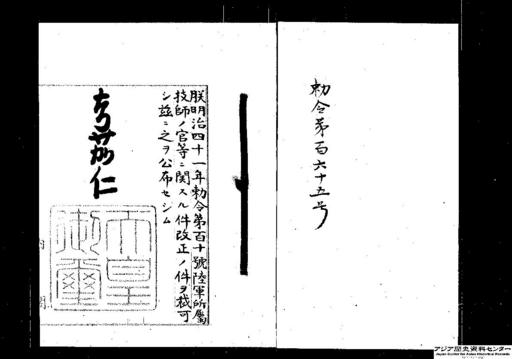 勅令第百六十五号
朕明治四十一年勅令第百十號陸軍所屬
技師ノ官等ニ關スル件改正ノ件ヲ裁可
シ茲ニ之ヲ公布セシム
嘉仁
天皇
御璽
アジア歴史資料センター
Japan Center for Asian Historical Records